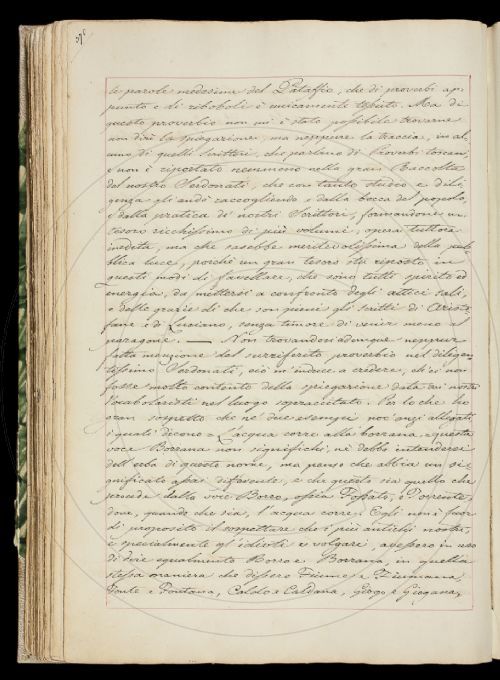 le parole medesime del Pataffio, che di proverbi ap-
punto e di riboboli è unicamente tessuto. Ma di
questo proverbio non mi è stato possibile trovarne
non dirò la spiegazione, ma neppure la traccia, in al-
cuno di quelli Scrittori, che parlano di Proverbi toscani,
e non è riportato nemmeno nella gran Raccolta
del nostro Serdonati, che con tanto studio e dili-
genza gli andò raccogliendo e dalla bocca del popolo,
e dalla pratica de' nostri Scrittori, formandone un
tesoro ricchissimo di più volumi, opera tuttora
inedita, ma che sarebbe meritevolissima della pub-
blica luce, perchè un gran tesoro sta riposto in
questi modi di favellare, che sono tutti spirito ed
energia, da mettersi a confronto degli attici sali,
e delle grazie di che son pieni gli scritti di Aristo-
fane e di Luciano, senza timore di venir meno al
paragone. — Non trovandosi adunque neppur
fatta menzione del surriferito proverbio nel diligen-
tissimo Serdonati, ciò m'induce a credere, ch'ei non
fosse molto contento della spiegazione data dai nostri
Vocabolaristi nel luogo sopraccitato. Per lo che ho
gran sospetto che ne' due esempi poc'anzi allegati,
i quali dicono = L'acqua corre alla borrana, = questa
voce Borrana non significhi, nè debba intendersi
dell'erba di questo nome, ma penso che abbia un si-
gnificato assai differente, e che questo sia quello che
procede dalla voce Borro, ossia Fossato, e Torrente
dove, quando che sia, l'acqua corre. Egli non è fuor
di proposito il sospettare che i più antichi nostri,
e specialmente gl'idioti e volgari, avessero in uso
di dire egualmente Borro e Borrana, in quella
stessa maniera che dissero Fiume e Fiumana,
Fonte e Fontana, Caldo e Caldana, Giogo e Giogana,